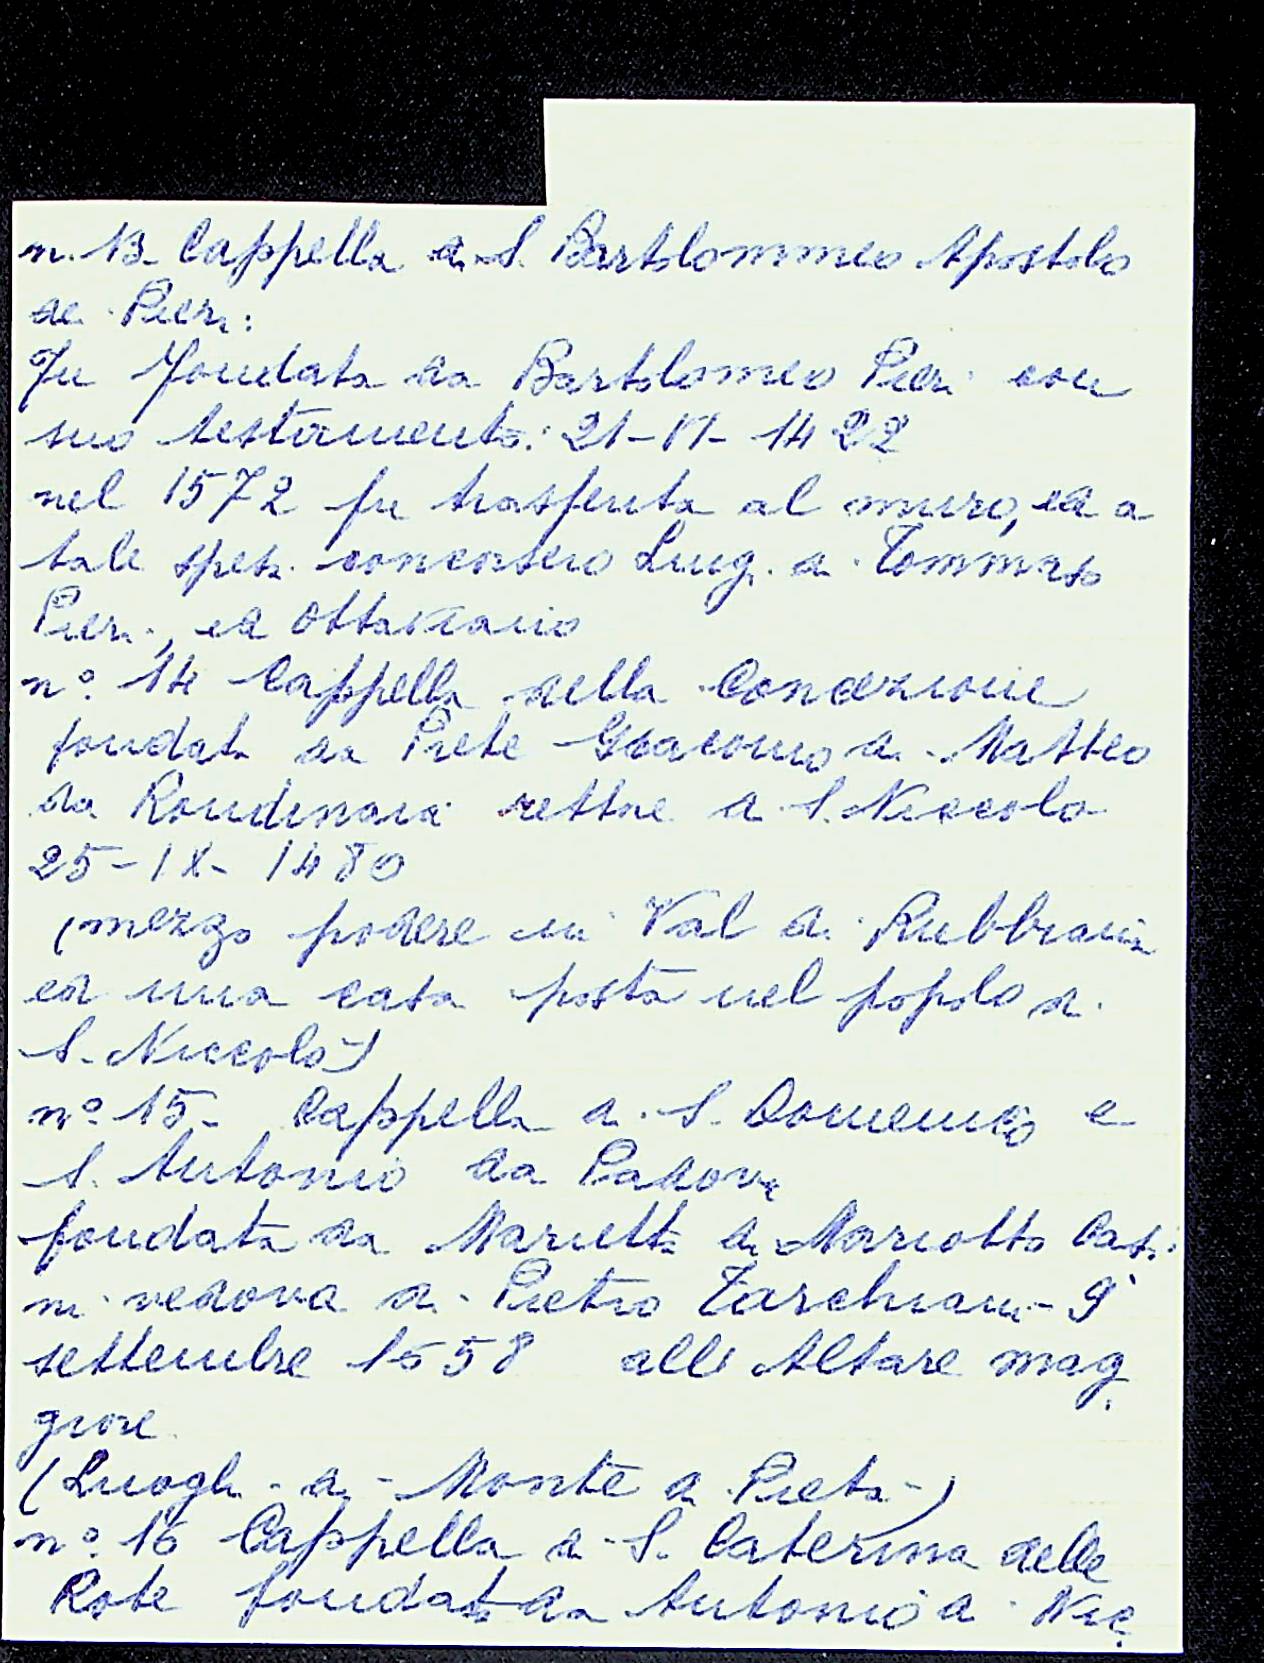 n. 13 Cappella di S. Bartolommeo Apostolo
dei Pieri:
Fu fondata da Bartolomeo Pieri con
suo testamento: 21-VI- 1422
nel 1572 fu trasferita al muro, ed a
tale spesa concorsero Luigi di Tommaso
Pieri, ed Ottaviano
n.º 14 Cappella della Concezione
fondata da Prete Giacomo di Matteo
da Rondinaia rettore di S. Niccolò
25-IX- 1480
(mezzo podere in Val di Rubbiana
ed una casa posta nel popolo di
S. Niccolò)
nº 15- Cappella di S. Domenico e
S. Antonio da Padova
fondata da Marietta di Mariotto Casi:
ni vedova di Pietro Tarchiani- 9
settembre 1558 all'Altare mag
giore.
(Luoghi di Monte di Pietà)
nº. 16 Cappella di S. Caterina delle
Rote fondata da Antonio di Nic